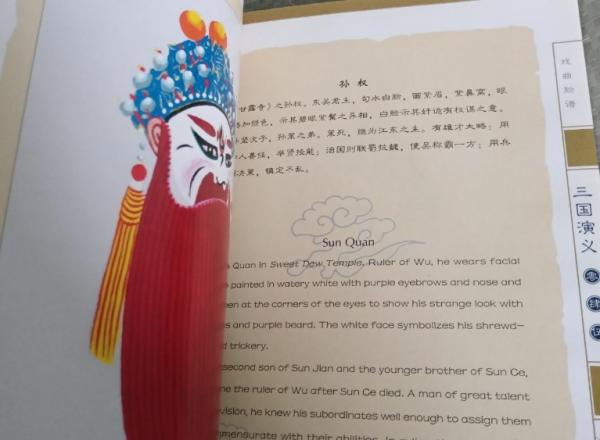 孙 权
甘露寺》之孙权。东吴君主，勾水白脸，画紫眉，紫鼻窝，眼
加绿色，示其碧眼紫髯之异相，白脸示其奸诈有权谋之意。
坚次子，孙策之弟。策死，继为江东之主。有雄才大略；用
人善任，举贤授能；治国则联蜀抗魏，使吴称霸一方；用兵
决策，镇定不乱。
Sun Quan
Quan in Sweet Dew Temple, Ruler of Wu, he wears facial
painted in watery white with purple eyebrows and nose and
at the corners of the eyes to show his strange look with
and purple beard. The white face symbolizes his shrewd-
trickery.
second son of Sun Jian and the younger brother of Sun Ce,
the ruler of Wu after Sun Ce died. A man of great talent
vision, he knew his subordinates well enough to assign them
with their abilities.
戏曲脸谱
三国演义
零肆